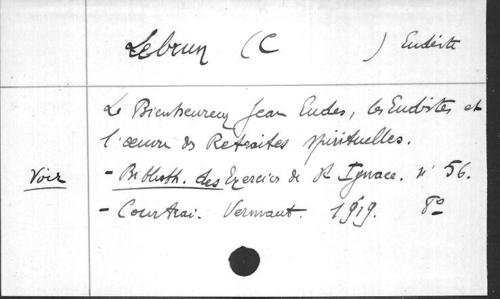 Lebrun (C ) Eudiste
Le Bienheureux Jean Eudes, les Eudistes et
l'œuvre des Retraites spirituelles.
Voir - Biblioth. des Exercices de St Ignace. n° 56.
- Courtrai. Vermaut. 1919. 8°